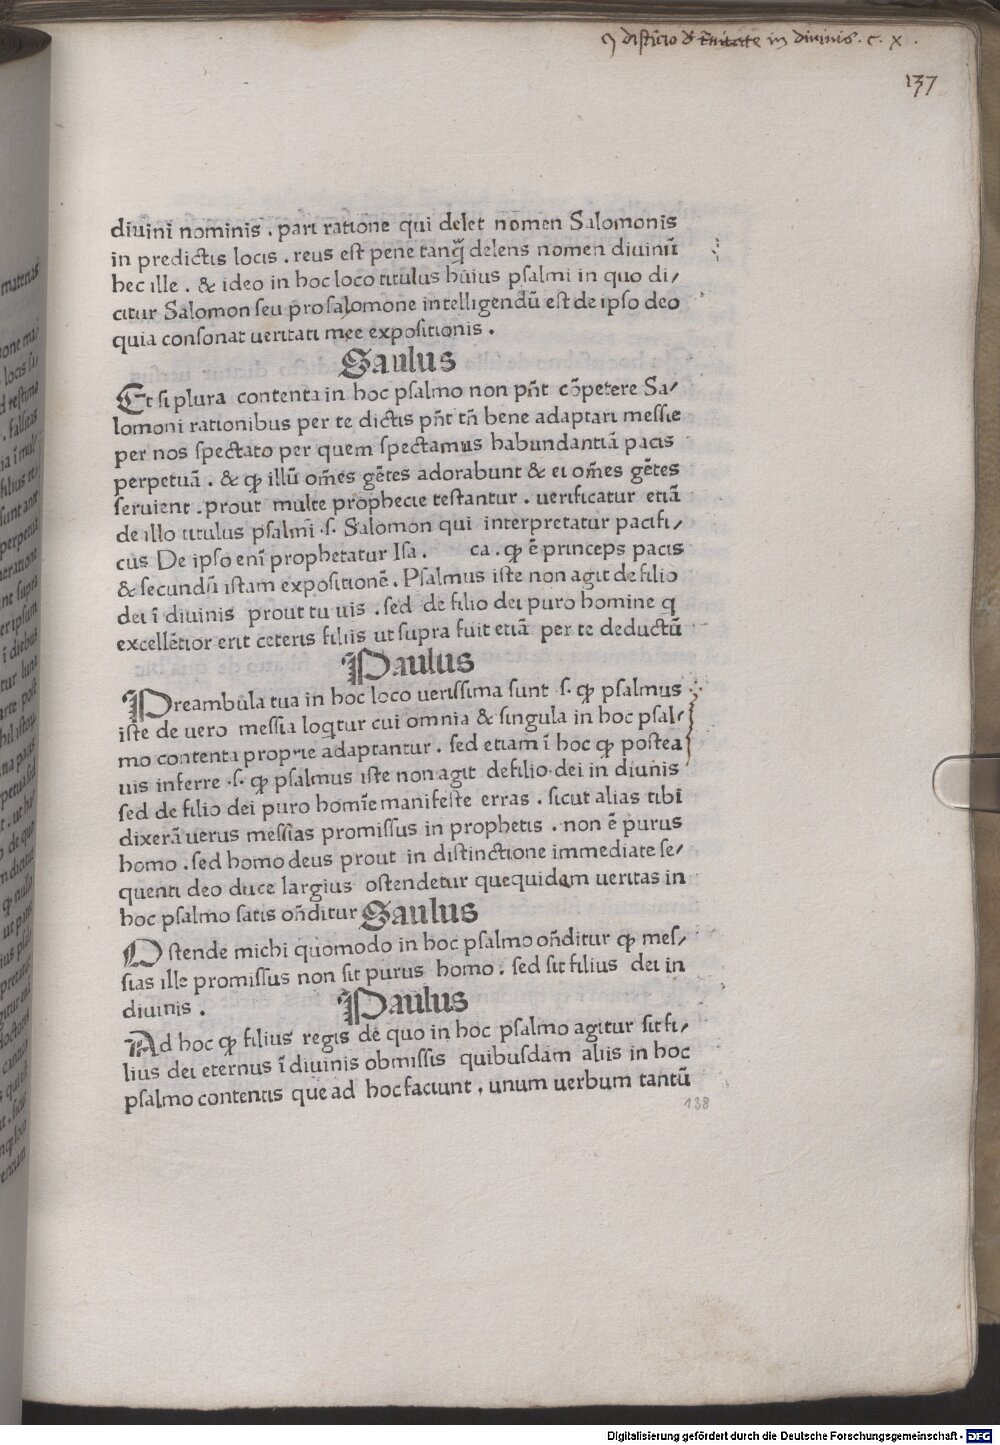 ꝯ distĩcio đ t̃nitate in diuinis . c . x .
137
diuini nominis . pari ratione qui delet nomen Salomonis
in predictis locis . reus est pene tanq̃ delens nomen diuinũ
hec ille . & ideo in hoc loco titulus huius psalmi in quo di/
citur Salomon seu pro salomone intelligendũ est de ipso deo
quia consonat ueritati mee expositionis .
Saulus
Et si plura contenta in hoc psalmo non pñt cõpetere Sa/
lomoni rationibus per te dictis pñt tñ bene adaptari messie
per nos spectato per quem spectamus habundantiã pacis
perpetuã . & ꝙ illũ om̃es gẽtes adorabunt & ei om̃es gẽtes
seruient . prout multe prophecie testantur . uerificatur etiã
de illo titulus psalmi .s. Salomon qui interpretatur pacifi/
cus De ipso eni prophetatur Isa . ca . ꝙ ẽ princeps pacis
& secundũ istam expositionẽ . Psalmus iste non agit de filio
dei ĩ diuinis prout tu uis . sed de filio dei puro homine q
excellẽtior erit ceteris filiis ut supra fuit etiã per te deductũ
Paulus
Preambula tua in hoc loco uerissima sunt .s. ꝙ psalmus
iste de uero messia loqtur cui omnia & singula in hoc psal/
mo contenta proprie adaptantur . sed etiam ĩ hoc ꝙ postea
uis inferre .s. ꝙ psalmus iste non agit de filio dei in diunis
sed de filio dei puro homĩe manifeste erras . sicut alias tibi
dixerã uerus messias promissus in prophetis . non ẽ purus
homo . sed homo deus prout in distinctione immediate se/
quenti deo duce largius ostendetur quequidam ueritas in
hoc psalmo satis oñditur Saulus
Ostende michi quomodo in hoc psalmo oñditur ꝙ mes/
sias ille promissus non sit purus homo . sed sit filius dei in
diuinis . Paulus
Ad hoc ꝙ filius regis de quo in hoc psalmo agitur sit fi/
lius dei eternus ĩ diuinis obmissis quibusdam aliis in hoc
psalmo contentis que ad hoc faciunt . unum uerbum tantũ
138
Digitalisierung gefördert durch die Deutsche Forschungsgemeinschaft - DFG